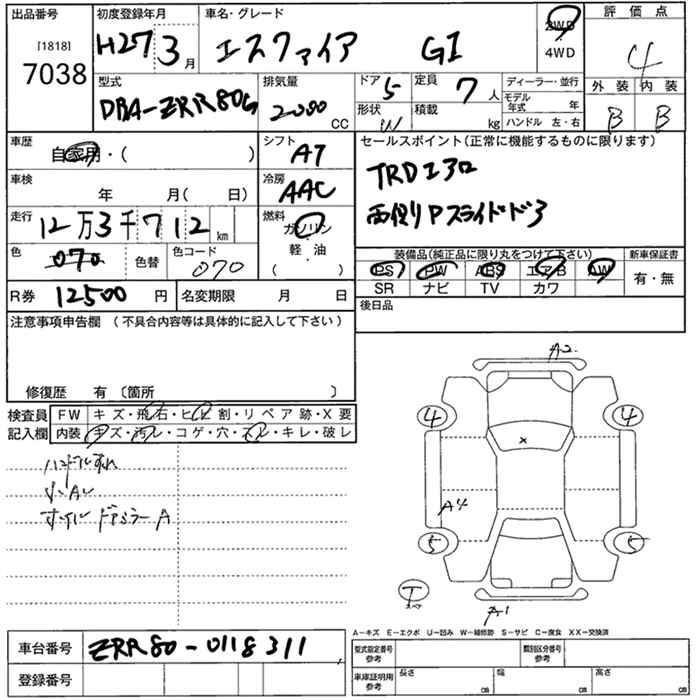 出品番号 初度登録年月 車名・グレード 2WD 評価点
[1818] H27 3月 エスクァイア GI ・ 4
7038 4WD
型式 排気量 ドア 5 定員 7人 ディーラー・並行 外装 内装
DBA-ZRR80G 2000 CC 形状 W 積載 kg モデル年式 年 B B
ハンドル 左・右
車歴 自家用・( ) シフト AT セールスポイント(正常に機能するものに限ります)
車検 年 月( 日) 冷房 AAC TRDエアロ
走行 12万3千712km 燃料 ガソリン 両側Pスライドドア
色 070 色替 色コード 070 軽・油 ・( ) 装備品(純正品に限り丸をつけて下さい) 新車保証書
PS PW ABS エアB AW 有・無
R券 12500円 名変期限 月 日 SR ナビ TV カワ
注意事項申告欄 (不具合内容等は具体的に記入して下さい) 後日品
修復歴 有 〔箇所 〕
A2
検査員 FW キズ・飛石・ヒビ割・リペア跡・X要
記入欄 内装 キズ・汚レ・コゲ・穴・スレ・キレ・破レ
4 4
×
ハンドルすれ
小AU
ホイル ドアミラーA
A4
5 5
T
A1
A-キズ E-エクボ U-凹み W-補修跡 S-サビ C-腐食 XX-交換済
車台番号 ZRR80-0118311 型式指定番号 参考 類別区分番号 参考
登録番号 車庫証明用 参考 長さ cm 幅 cm 高さ cm